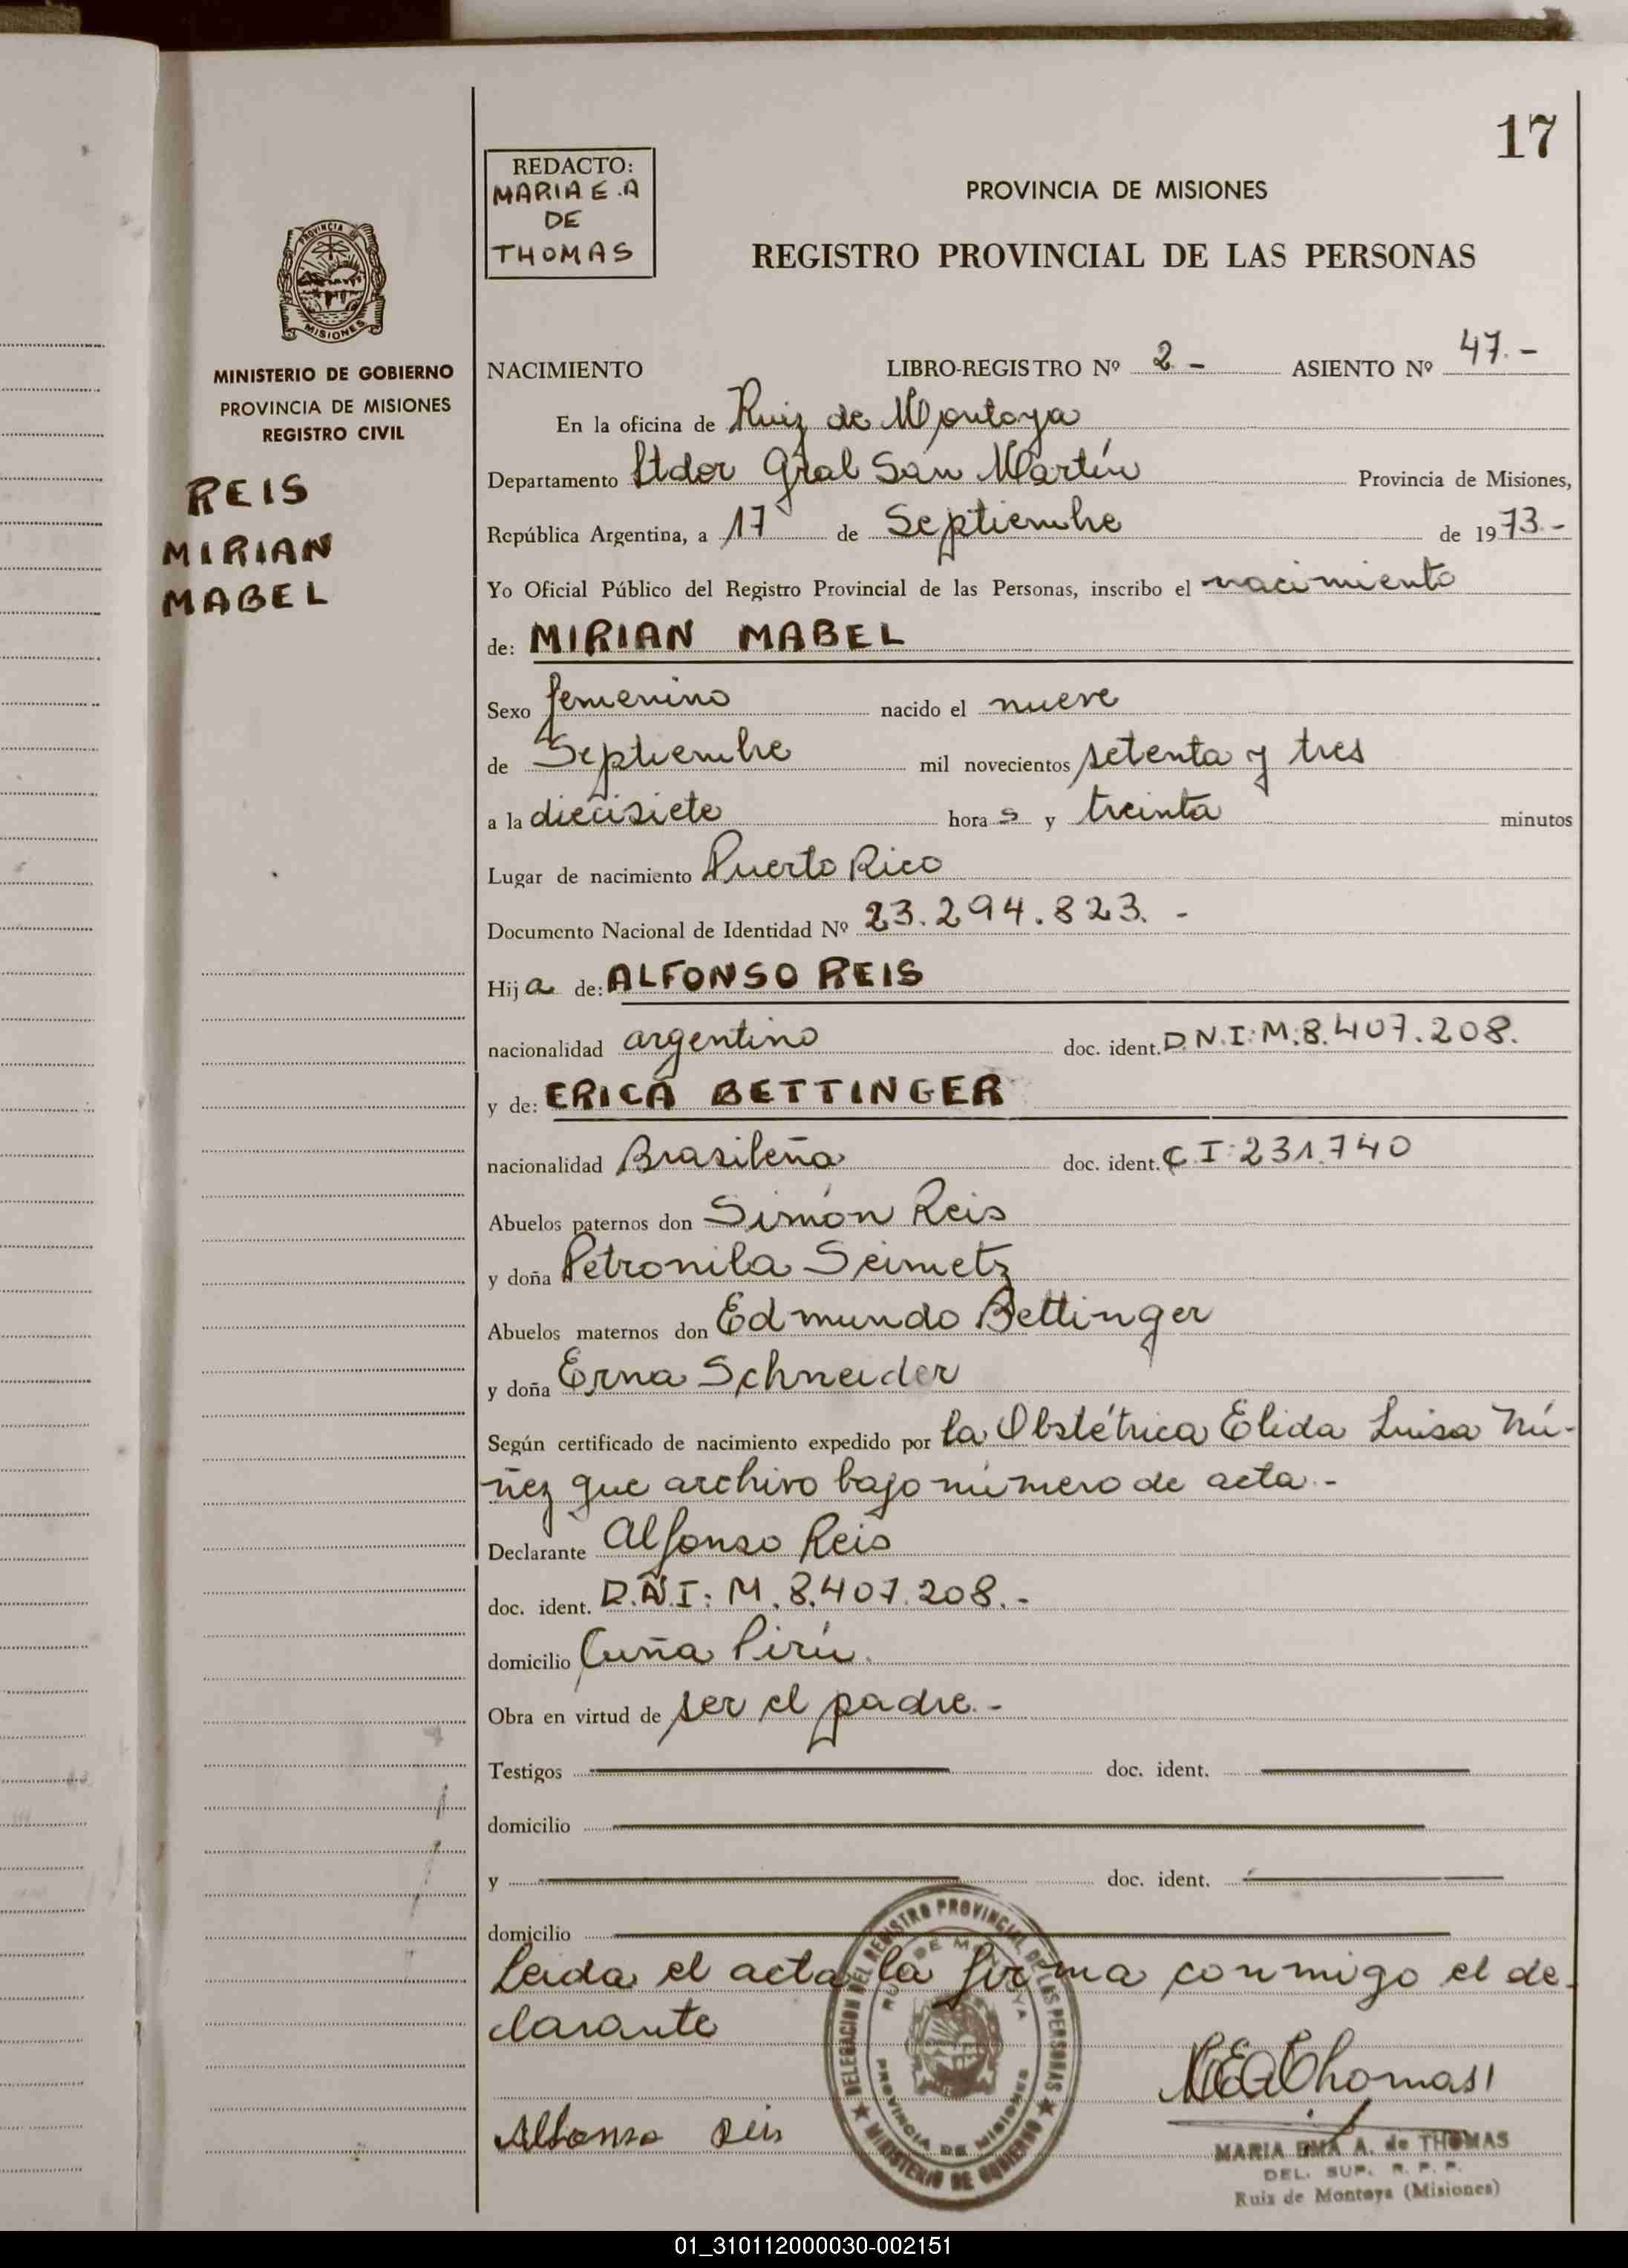 17
REDACTO:
MARIA E.A
DE
THOMAS
PROVINCIA DE MISIONES
REGISTRO PROVINCIAL DE LAS PERSONAS
PROVINCIA DE
MISIONES
MINISTERIO DE GOBIERNO
PROVINCIA DE MISIONES
REGISTRO CIVIL
REIS
MIRIAN
MABEL
NACIMIENTO LIBRO-REGISTRO Nº 2 - ASIENTO Nº 47.-
En la oficina de Ruiz de Montoya
Departamento Ltdor Gral San Martín Provincia de Misiones,
República Argentina, a 17 de Septiembre de 1973.-
Yo Oficial Público del Registro Provincial de las Personas, inscribo el nacimiento
de: MIRIAN MABEL
Sexo femenino nacido el nueve
de Septiembre mil novecientos setenta y tres
a la diecisiete hora s y treinta minutos
Lugar de nacimiento Puerto Rico
Documento Nacional de Identidad Nº 23.294.823. -
Hij a de: ALFONSO REIS
nacionalidad argentino doc. ident. D.N.I: M: 8.407.208.
y de: ERICA BETTINGER
nacionalidad Brasileña doc. ident. C.I: 231.740
Abuelos paternos don Simón Reis
y doña Petronila Seimetz
Abuelos maternos don Edmundo Bettinger
y doña Erna Schneider
Según certificado de nacimiento expedido por la Obstétrica Elida Luisa Nú-
ñez que archivo bajo número de acta.-
Declarante Alfonso Reis
doc. ident. D.N.I: M. 8.407.208.-
domicilio Cuña Pirú.
Obra en virtud de ser el padre.-
Testigos doc. ident.
domicilio
y doc. ident.
domicilio
Leida el acta la firma conmigo el de-
clarante
DELEGACION DEL REGISTRO PROVINCIAL DE LAS PERSONAS
RUIZ DE MONTOYA
PROVINCIA DE MISIONES
★ MINISTERIO DE GOBIERNO ★
MEAThomas
Alfonso Reis
MARIA EMA A. de THOMAS
DEL. SUP. R. P. P.
Ruiz de Montoya (Misiones)
01_310112000030-002151